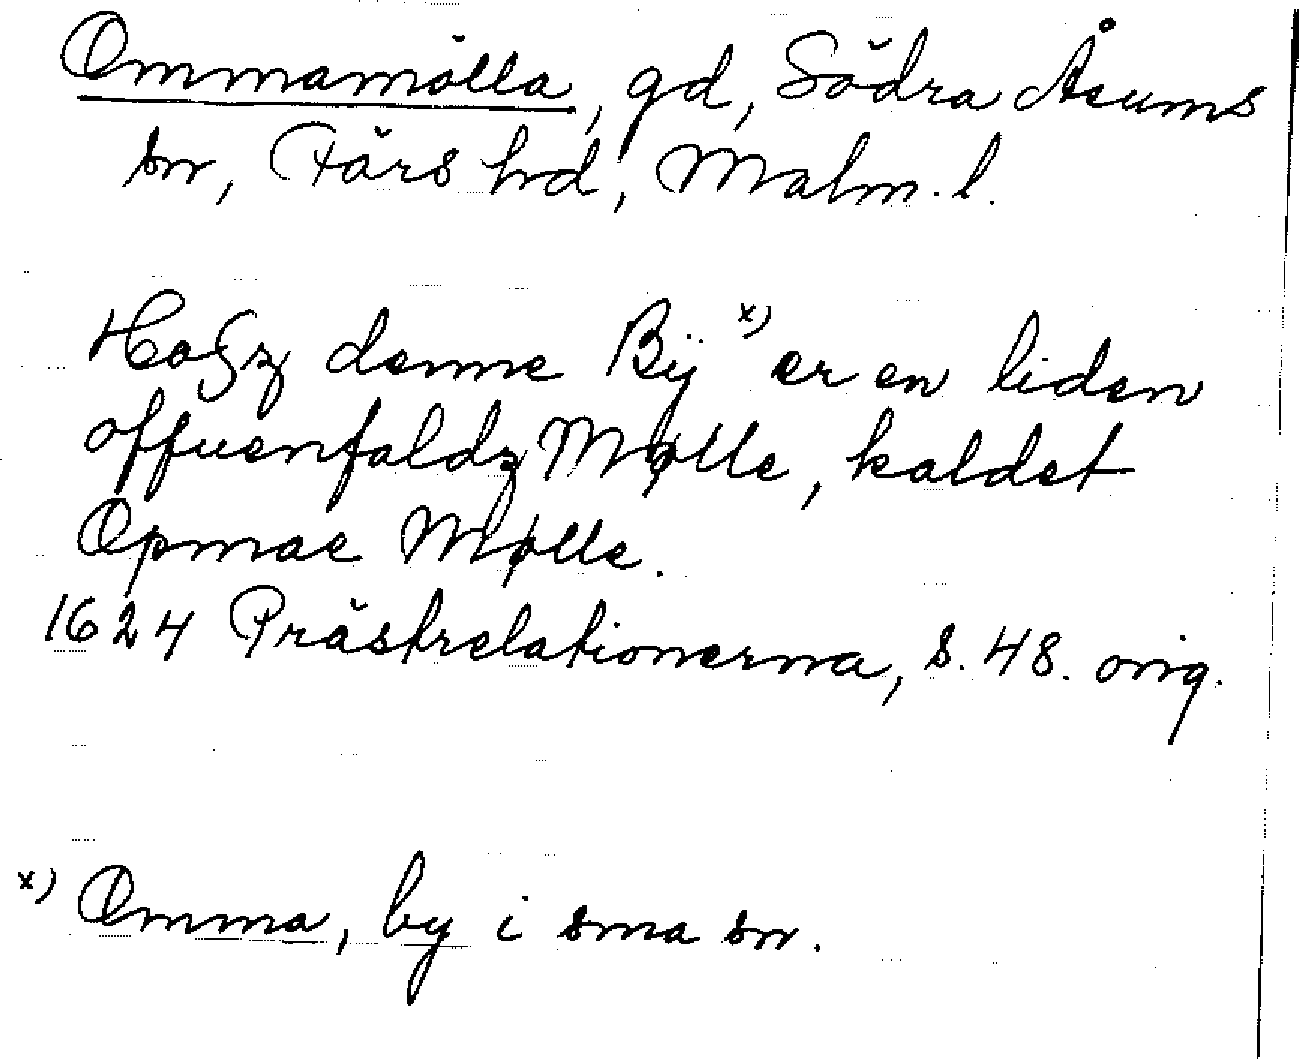 Ommamölla, gd, Södra Åsums
sn, Färs hd, Malm. l.
HoSz denne Bÿ x) er en liden
offuenfaldz Mølle, kaldet
Opmae Mølle.
1624 Prästrelationerna, s. 48. orig.
x) Omma, by i sma sn.